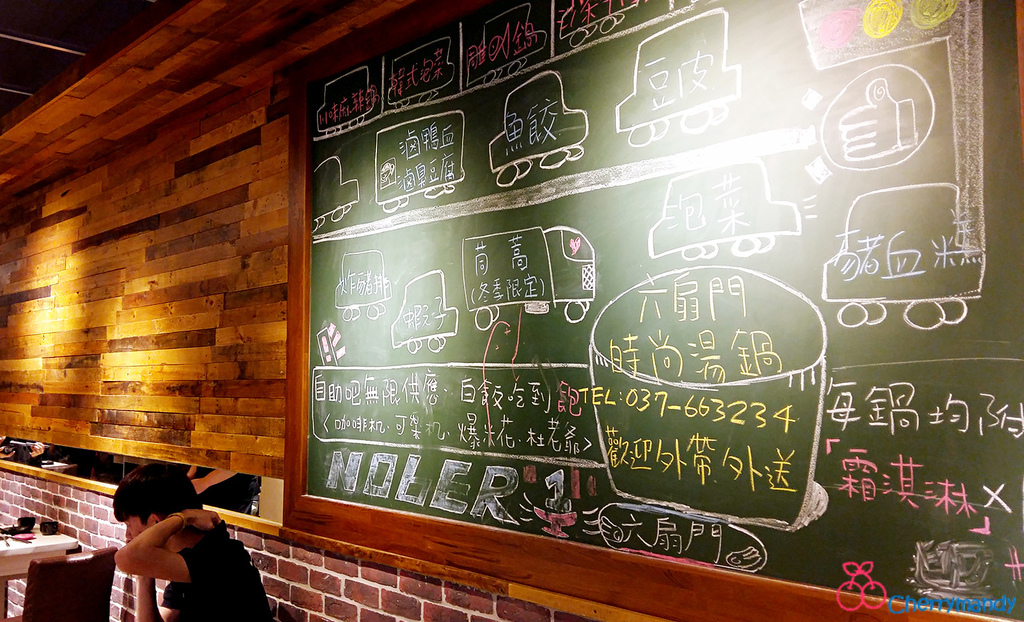 韓式泡菜
豆皮
魚餃
滷鴨血
滷臭豆腐
泡菜
豬血糕
茼蒿
(冬季限定)
炸豬排
蝦子
六扇門
時尚湯鍋
TEL:037-663234
歡迎外帶外送
自助吧無限供應:白飯吃到飽
<咖啡机.可樂机.爆米花.杜老爺>
每鍋均附
「霜淇淋×
NOBER 1
六扇門
Cherrymandy